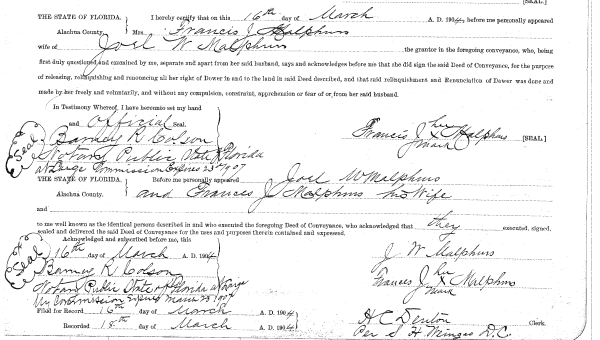 [SEAL]
THE STATE OF FLORIDA. I hereby certify that on this 16th day of March A. D. 1904, before me personally appeared
Alachua County. Mrs. Francis J Malphurs
wife of Joel W Malphurs the grantor in the foregoing conveyance, who, being
first duly questioned and examined by me, separate and apart from her said husband, says and acknowledges before me that she did sign the said Deed of Conveyance, for the purpose
of releasing, relinquishing and renouncing all her right of Dower in and to the land in said Deed described, and that said relinquishment and Renunciation of Dower was done and
made by her freely and voluntarily, and without any compulsion, constraint, apprehension or fear of or from her said husband.
In Testimony Whereof, I have hereunto set my hand
and Official Seal.
Seal Barney R Colson
Francis J her x mark Malphurs [SEAL]
Notary Public State of Florida
at Large Commission Expires 23-1907
THE STATE OF FLORIDA. Before me personally appeared Joel W Malphurs
Alachua County. and Frances J Malphurs his Wife
and
to me well known as the identical persons described in and who executed the foregoing Deed of Conveyance, who acknowledged that they executed, signed,
sealed and delivered the said Deed of Conveyance for the uses and purposes therein contained and expressed.
Acknowledged and subscribed before me, this
Seal 16th day of March A. D. 1904
J W Malphurs
Barney R Colson
Frances J her x mark Malphurs
Notary Public State of Florida at Large
My Commission Expires March 23 1907
Filed for Record 16th day of March A. D. 1904
H C Denton Clerk.
Recorded 18th day of March A. D. 1904
Per S H Wienges D.C.